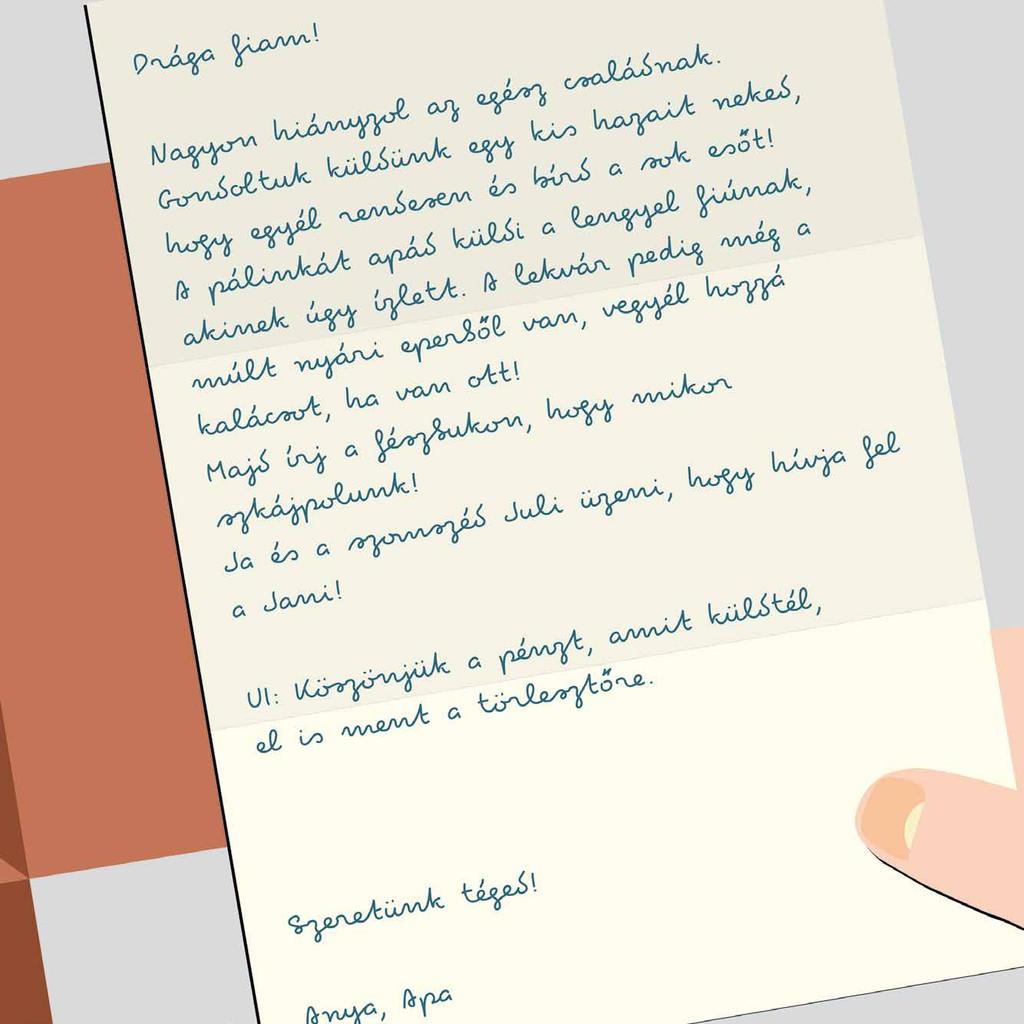 Drága fiam!
Nagyon hiányzol az egész családnak.
Gondoltuk küldünk egy kis hazait neked,
hogy egyél rendesen és bírd a sok esőt!
A pálinkát apád küldi a lengyel fiúnak,
akinek úgy ízlett. A lekvár pedig még a
múlt nyári eperből van, vegyél hozzá
kalácsot, ha van ott!
Majd írj a fészbukon, hogy mikor
szkájpolunk!
Ja és a szomszéd Juli üzeni, hogy hívja fel
a Jani!
UI: Köszönjük a pénzt, amit küldtél,
el is ment a törlesztőre.
Szeretünk téged!
Anya, Apa